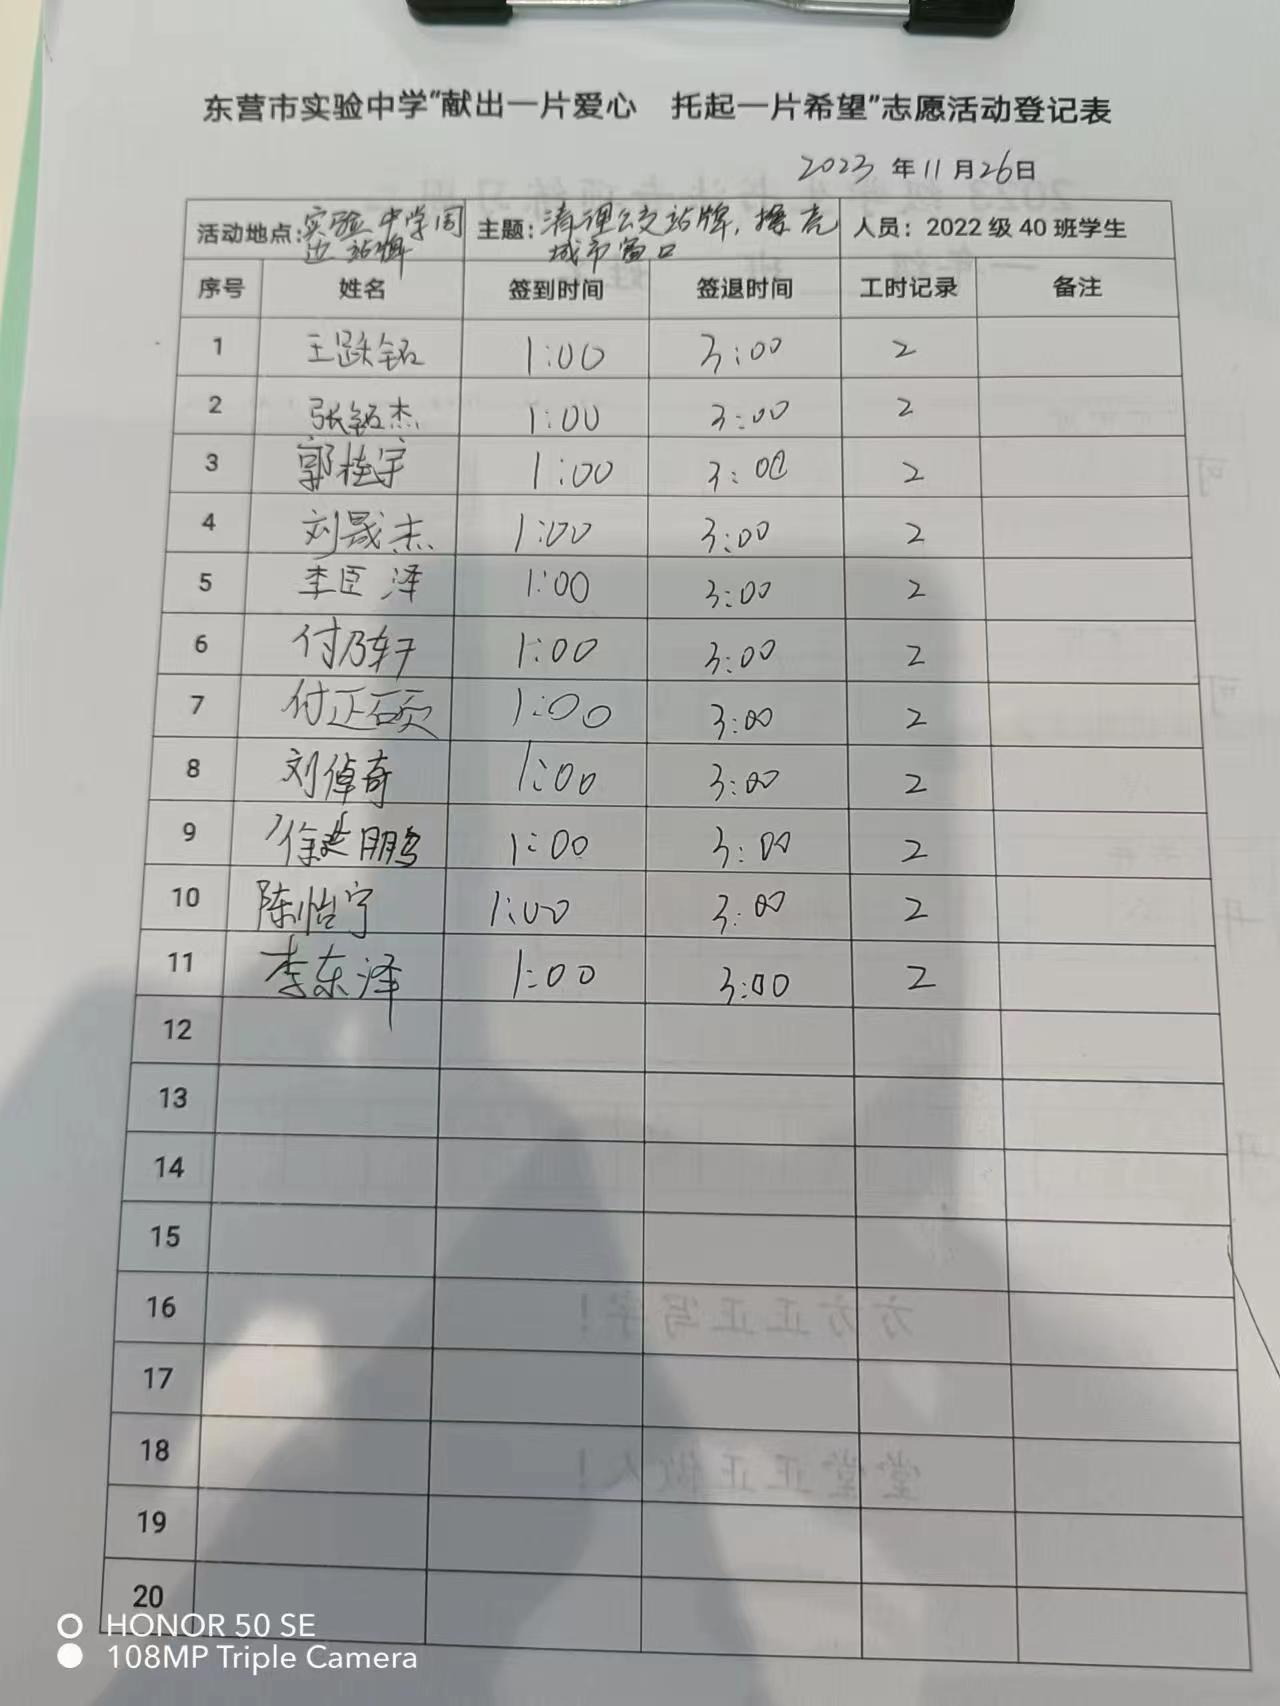 东营市实验中学“献出一片爱心 托起一片希望”志愿活动登记表
2023 年 11 月 26 日
活动地点：实验中学周边站牌 主题：清理公交站牌，擦亮城市窗口 人员：2022 级 40 班学生
序号 姓名 签到时间 签退时间 工时记录 备注
1 王跃铭 1:00 3:00 2
2 张铭杰 1:00 3:00 2
3 郭桂宇 1:00 3:00 2
4 刘晟杰 1:00 3:00 2
5 李臣泽 1:00 3:00 2
6 付乃轩 1:00 3:00 2
7 付正硕 1:00 3:00 2
8 刘倬奇 1:00 3:00 2
9 徐 鹏 1:00 3:00 2
10 陈怡宁 1:00 3:00 2
11 李东泽 1:00 3:00 2
12
13
14
15
16
17
18
19
20
方方正正写字！
堂堂正正做人！
HONOR 50 SE
108MP Triple Camera